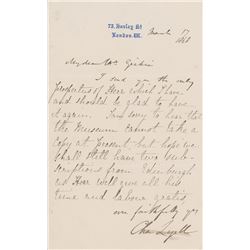 73, Harley St
London. W.
March 17
1868
My dear Mr
I send you the only
prospectus of Heer which I have
and should be glad to have
it again. I am sorry to hear that
the Museum cannot take a
copy at present, but hope we
shall still have two sub-
scriptions from Edinburgh
as Heer will give all his
time and labour gratis
ever faithfully yrs
Cha Lyell